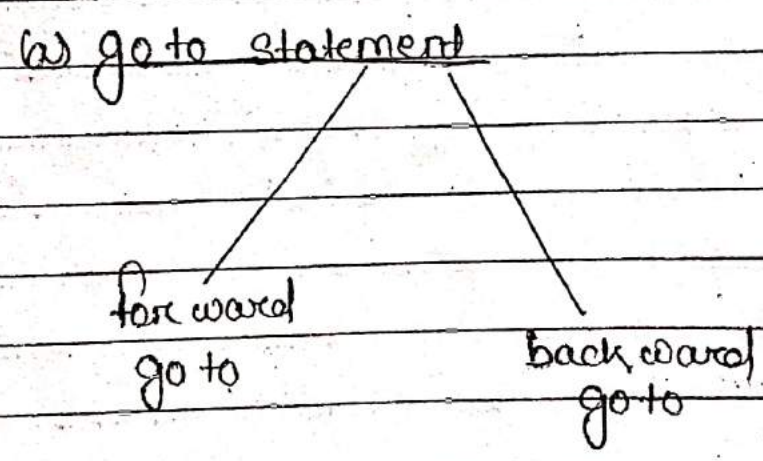 (a) go to statement
forward
go to
backward
go to